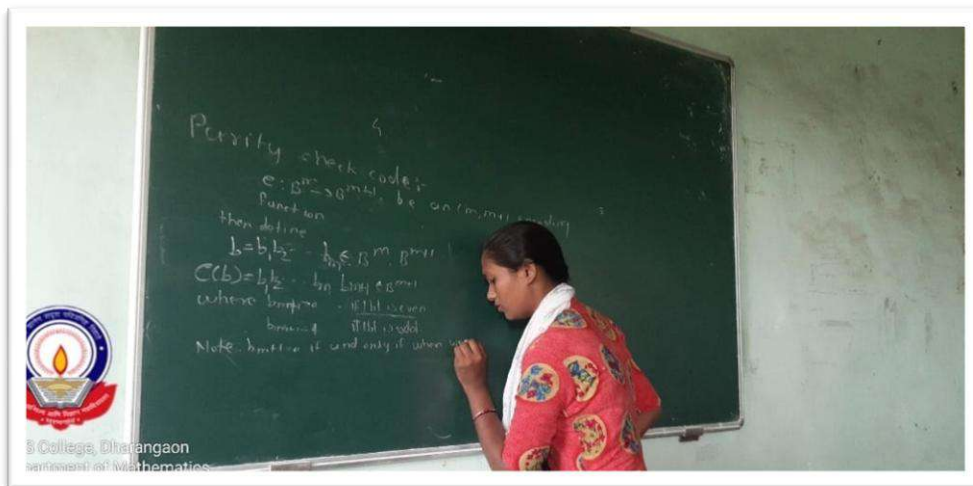 Parrity check code :-
e : B^m → B^m+1 be an (m, m+1) encoding
function
then define
b = b1b2 - - bm ∈ B^m . B^m+1
e(b) = b1b2 - - bm bm+1 ∈ B^m+1
where bm+1 = 0 . if |b| is even
bm+1 = 1 if |b| is odd
Note - bm+1 = 0 if and only if when
S College, Dharangaon
partment of Mathematics